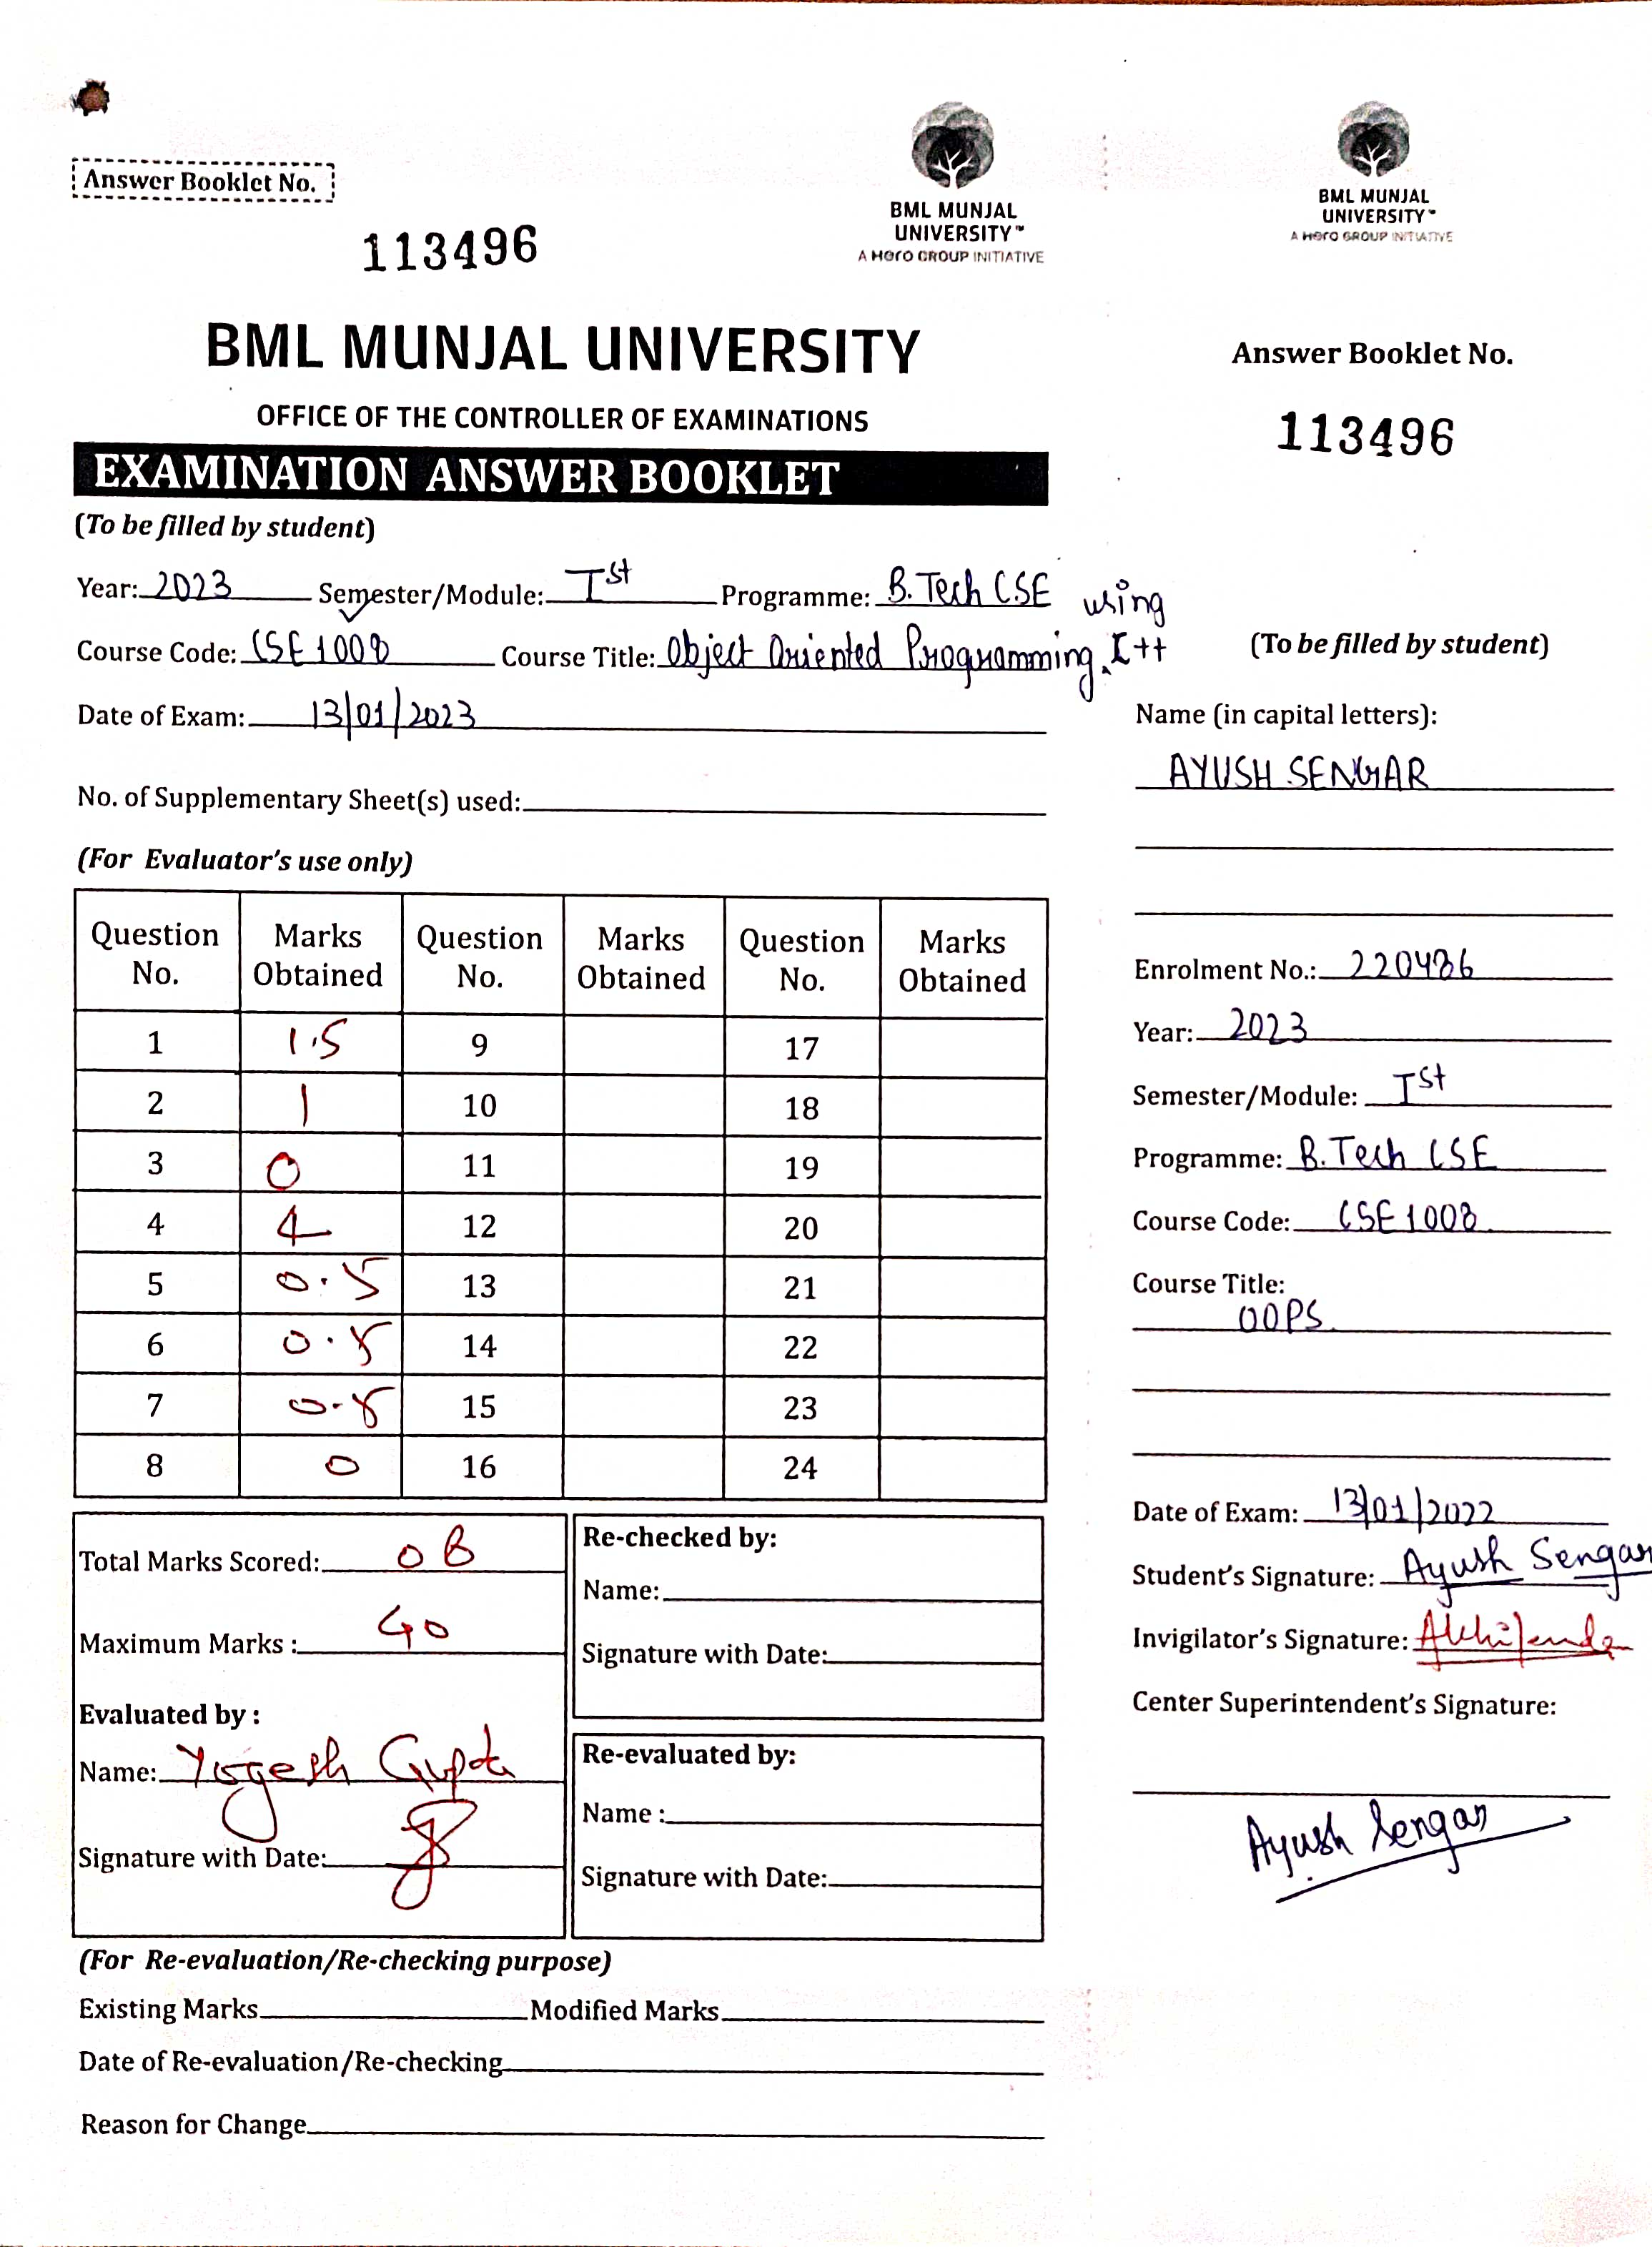 Answer Booklet No.
113496
BML MUNJAL
UNIVERSITY™
A Hero GROUP INITIATIVE
BML MUNJAL
UNIVERSITY™
A Hero GROUP INITIATIVE
BML MUNJAL UNIVERSITY
OFFICE OF THE CONTROLLER OF EXAMINATIONS
EXAMINATION ANSWER BOOKLET
(To be filled by student)
Year: 2023 Semester/Module: Ist Programme: B.Tech CSE
Course Code: CSE1008 Course Title: Object Oriented Programming using C++
Date of Exam: 13/01/2023
No. of Supplementary Sheet(s) used:
(For Evaluator's use only)
Question No. Marks Obtained Question No. Marks Obtained Question No. Marks Obtained
1 1.5 9 17
2 1 10 18
3 0 11 19
4 4 12 20
5 0.5 13 21
6 0.5 14 22
7 0.5 15 23
8 0 16 24
Total Marks Scored: 08
Maximum Marks : 40
Evaluated by :
Name: Yogesh Gupta
Signature with Date:
Re-checked by:
Name:
Signature with Date:
Re-evaluated by:
Name :
Signature with Date:
(For Re-evaluation/Re-checking purpose)
Existing Marks Modified Marks
Date of Re-evaluation/Re-checking
Reason for Change
Answer Booklet No.
113496
(To be filled by student)
Name (in capital letters):
AYUSH SENGAR
Enrolment No.: 220486
Year: 2023
Semester/Module: Ist
Programme: B.Tech CSE
Course Code: CSE1008
Course Title:
OOPS
Date of Exam: 13/01/2022
Student's Signature: Ayush Sengar
Invigilator's Signature:
Center Superintendent's Signature:
Ayush Sengar